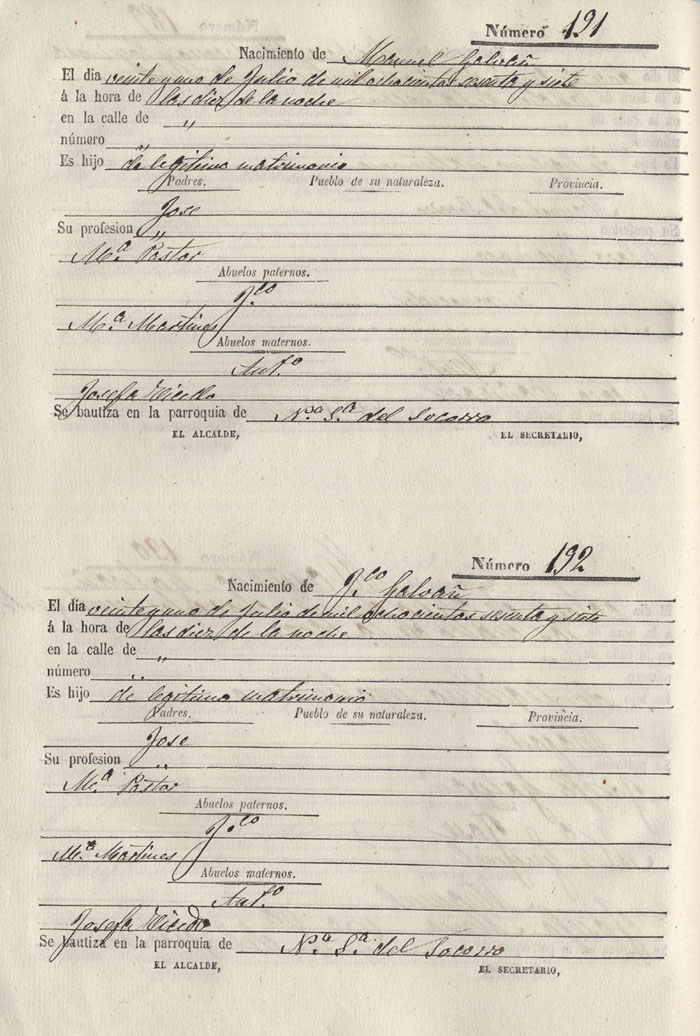 Número 191
Nacimiento de Manuel Galvañ
El dia veinte y uno de Julio de mil ochocientos sesenta y siete
á la hora de las diez de la noche
en la calle de "
número "
Es hijo de legitimo matrimonio
Padres. Pueblo de su naturaleza. Provincia.
Jose
Su profesion "
Mª Pastor
Abuelos paternos.
Fco
Mª Martines
Abuelos maternos.
Anto
Josefa
Se bautiza en la parroquia de Nª Sª del Socorro
EL ALCALDE, EL SECRETARIO,
Número 192
Nacimiento de Fco Galvañ
El dia veinte y uno de Julio de mil ochocientos sesenta y siete
á la hora de las diez de la noche
en la calle de "
número "
Es hijo de legitimo matrimonio
Padres. Pueblo de su naturaleza. Provincia.
Jose
Su profesion "
Mª Pastor
Abuelos paternos.
Fco
Mª Martines
Abuelos maternos.
Anto
Josefa
Se bautiza en la parroquia de Nª Sª del Socorro
EL ALCALDE, EL SECRETARIO,